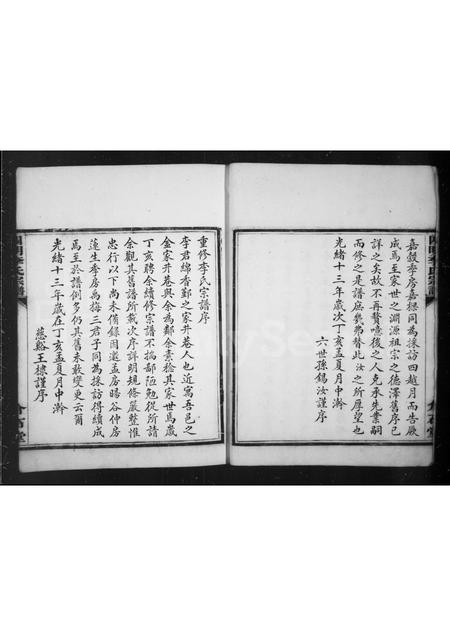 嘉毅季房嘉樑同為採訪四越月而告厥
成焉至家世之淵源祖宗之德澤舊序已
詳之矣故不再贅噫後之人克承先業嗣
而修之是譜庶幾弗替此汝之所厚望也
光緒十三年歲次丁亥孟夏月中澣
六世孫錫汝謹序
重修李氏宗譜序
李君綿香鄞之家井巷人也近寓吾邑之
金家井巷與余為鄰余素稔其家世焉歲
丁亥聘余續修宗譜不揣鄙陋勉從所請
余觀其舊譜所載次序詳明規條嚴整惟
忠行以下尚未備錄因邀孟房暘谷仲房
遠生季房禹梅三君子同為採訪得續成
焉至於譜例多仍其舊未敢變更云爾
光緒十三年歲在丁亥孟夏月中澣
慈谿王棣謹序